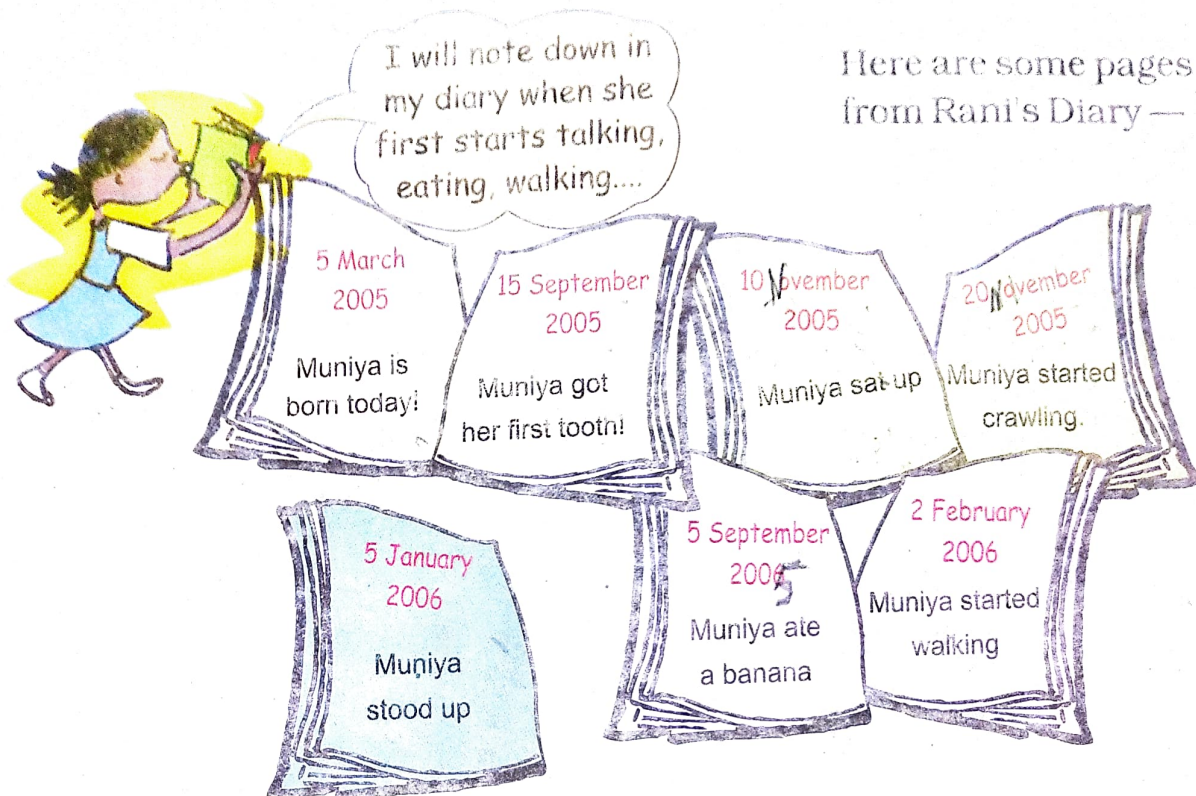 I will note down in
my diary when she
first starts talking,
eating, walking....
Here are some pages
from Rani's Diary —
5 March
2005
Muniya is
born today!
15 September
2005
Muniya got
her first tooth!
10 November
2005
Muniya sat up
20 November
2005
Muniya started
crawling.
5 January
2006
Muniya
stood up
5 September
2006 5
Muniya ate
a banana
2 February
2006
Muniya started
walking